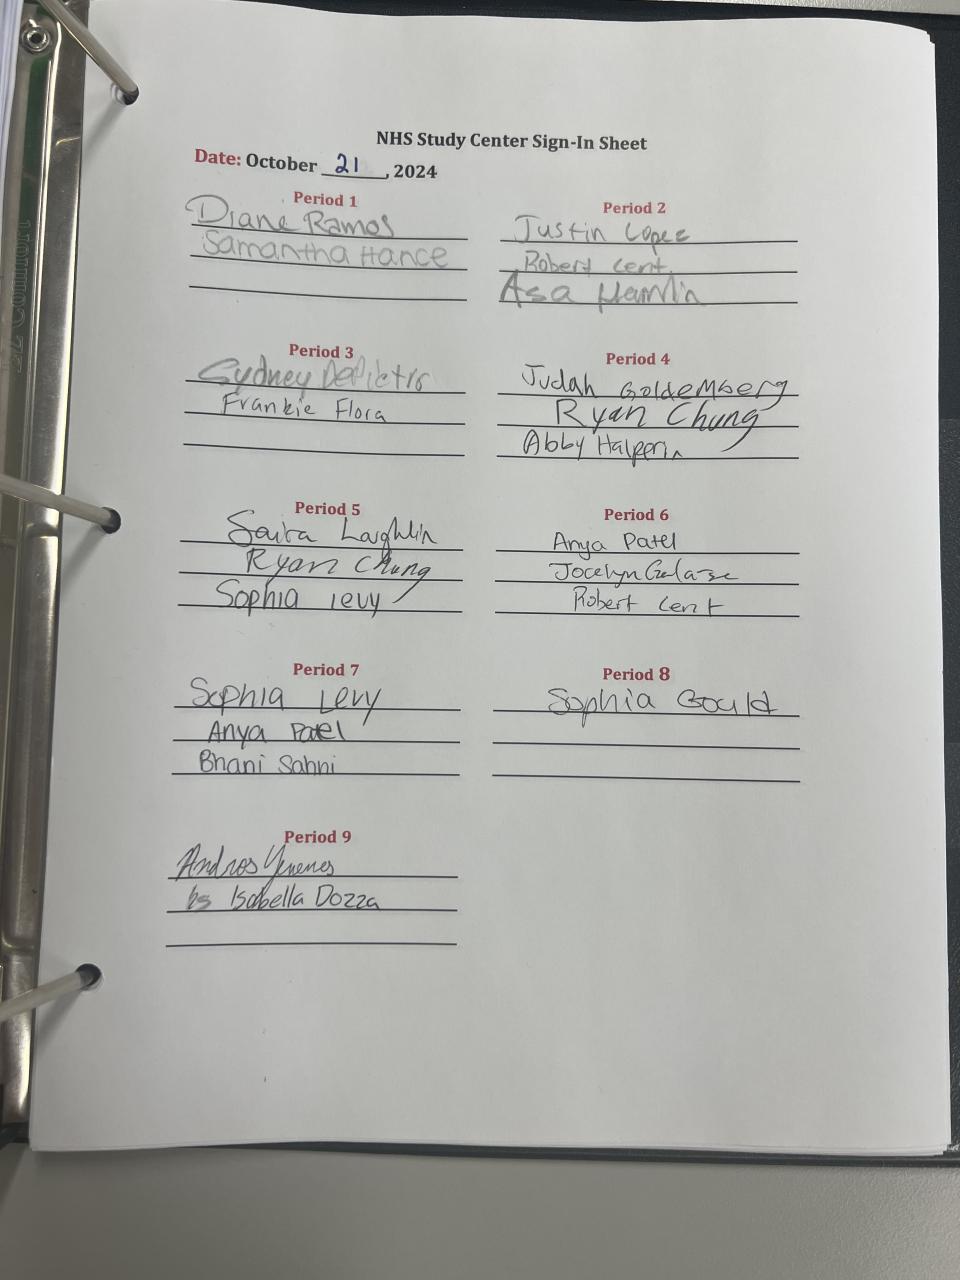 NHS Study Center Sign-In Sheet
Date: October 21, 2024
Period 1
Diane Ramos
Samantha Hance
Period 2
Justin Lopez
Robert Cent
Asa Hamlin
Period 3
Sydney DePietro
Frankie Flora
Period 4
Judah Goldemberg
Ryan Chung
Abby Halperin
Period 5
Saira Laughlin
Ryan Chung
Sophia Levy
Period 6
Anya Patel
Jocelyn
Robert Cent
Period 7
Sophia Levy
Anya Patel
Bhani Sahni
Period 8
Sophia Gould
Period 9
Andres
Isabella Dozza